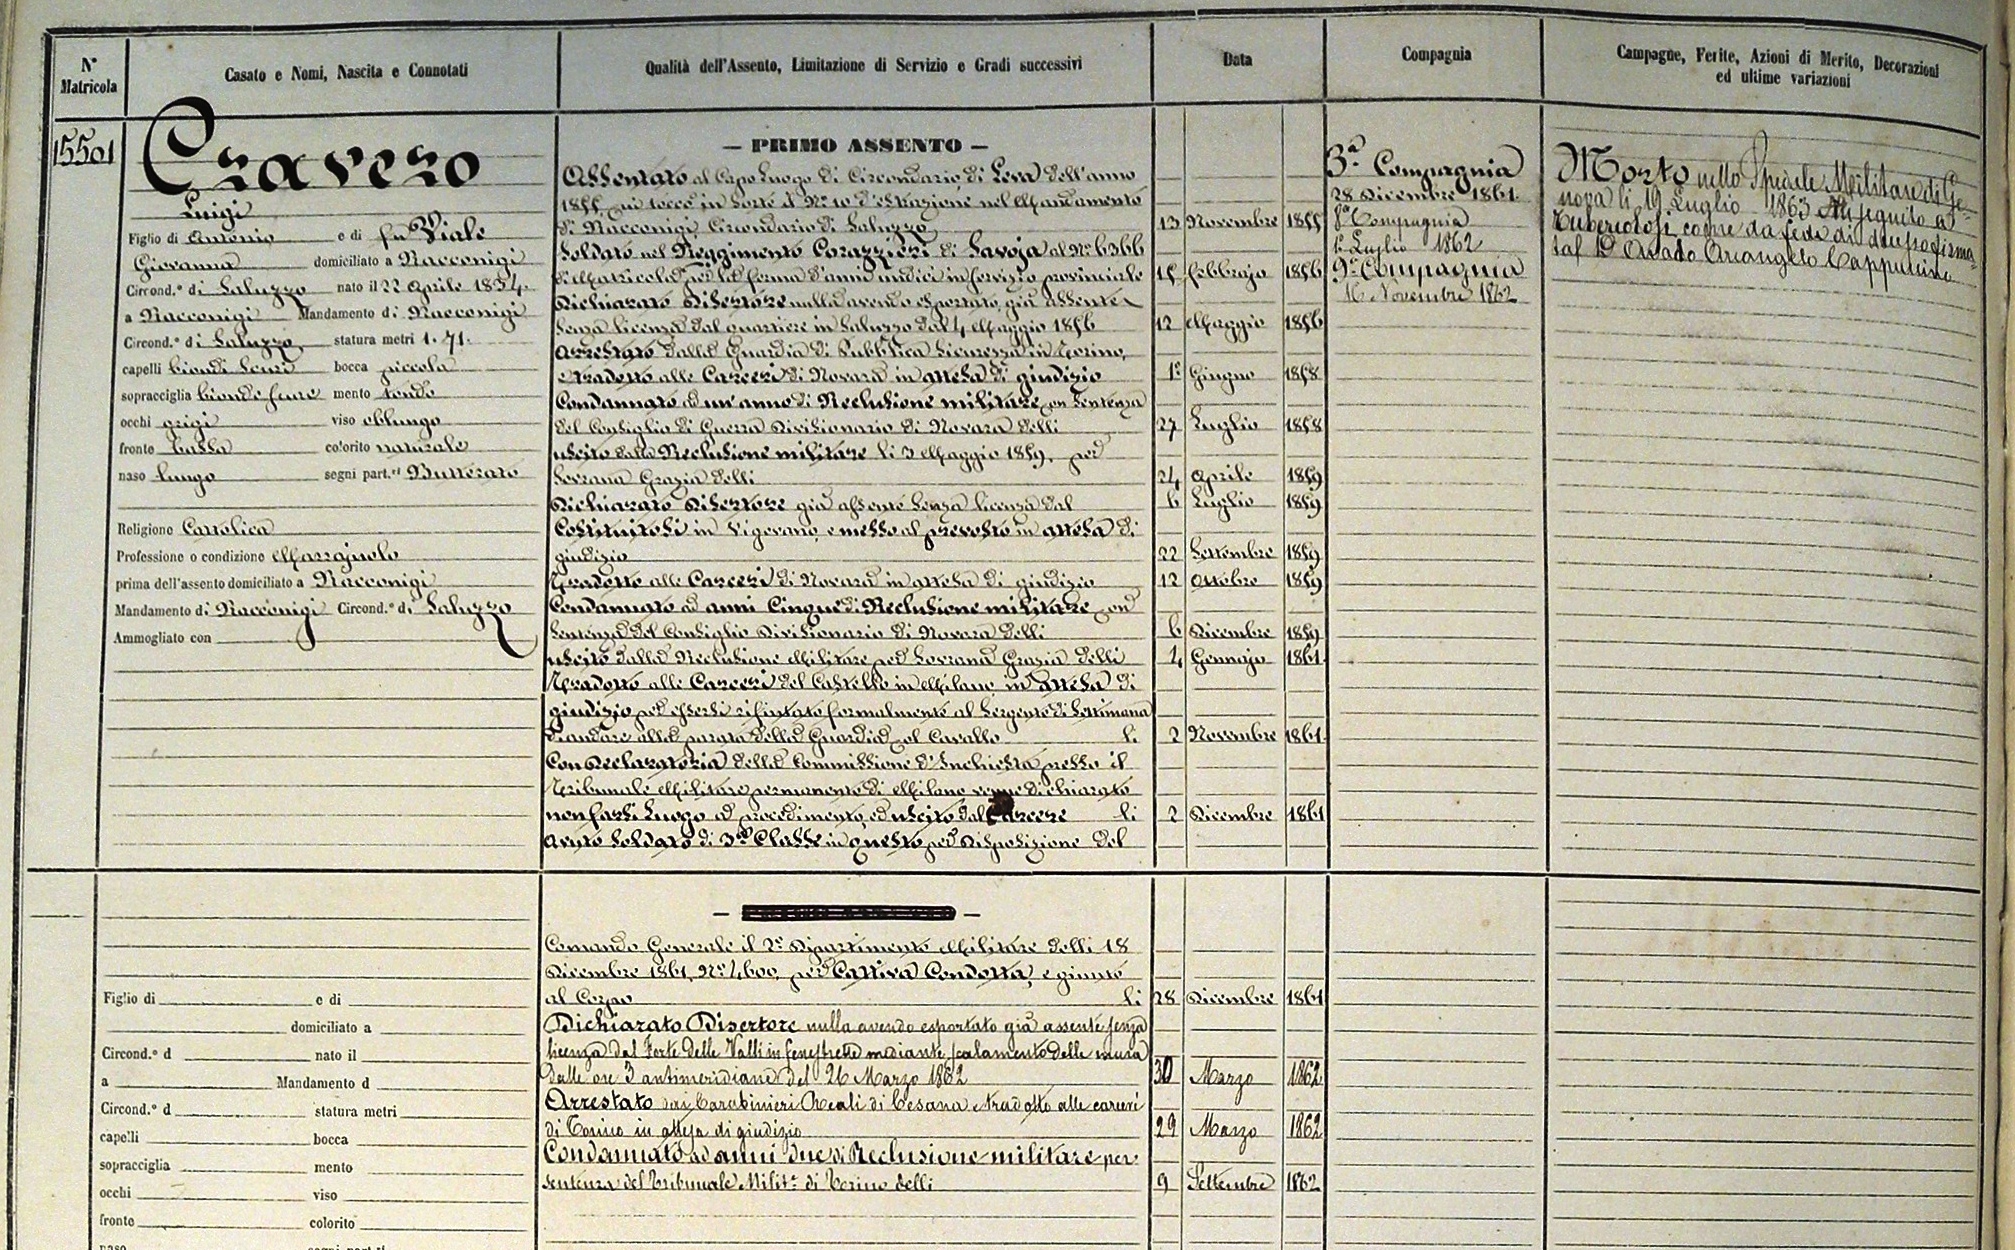 N° Matricola
Casato e Nomi, Nascita e Connotati
Qualità dell'Assento, Limitazione di Servizio e Gradi successivi
Data
Compagnia
Campagne, Ferite, Azioni di Merito, Decorazioni
ed ultime variazioni
15501
Cravero
Luigi
Figlio di Antonio e di fu Viale
Giovanna domiciliato a Racconigi
Circond.° di Saluzzo nato il 22 Aprile 1834.
a Racconigi Mandamento di Racconigi
Circond.° di Saluzzo statura metri 1.71.
capelli biondi scuri bocca piccola
sopracciglia bionde scure mento tondo
occhi grigi viso oblungo
fronte bassa colorito naturale
naso lungo segni part.ri Butterato
Religione Cattolica
Professione o condizione
prima dell'assento domiciliato a Racconigi
Mandamento di Racconigi Circond.° di Saluzzo
Ammogliato con
— PRIMO ASSENTO —
Assentato al Capo Luogo di Circondario, di Leva dell'anno
1855, cui toccò in sorte il N° 10 d'estrazione nel Mandamento
di Racconigi Circondario di Saluzzo 13 Novembre 1855
Soldato nel Reggimento Corazzieri di Savoja al N° 6366
di Matricola per la ferma d'anni undici in servizio provinciale 15 febbrajo 1856
Dichiarato Disertore nulla avendo esportato, già assente
senza licenza dal quartiere in Saluzzo dal 4 Maggio 1856 12 Maggio 1856
Arrestato dalla Guardia di Pubblica Sicurezza in Torino,
e tradotto alle Carceri di Novara in attesa di giudizio 1° Giugno 1858
Condannato ad un'anno di Reclusione militare con sentenza
del Consiglio di Guerra Divisionario di Novara delli 27 Luglio 1858
uscito dalla Reclusione militare li 3 Maggio 1859. per
Sovrana Grazia delli 24 Aprile 1859
Dichiarato Disertore già assente senza licenza dal 6 Luglio 1859
Costituitosi in Vigevano, e messo al prevosto in attesa di
giudizio 22 Settembre 1859
Tradotto alle Carceri di Novara in attesa di giudizio 12 Ottobre 1859
Condannato ad anni Cinque di Reclusione militare con
sentenza del Consiglio Divisionario di Novara delli 6 Dicembre 1859
uscito dalla Reclusione Militare per Sovrana Grazia delli 4 Gennajo 1861
Tradotto alle Carceri del Castello in Milano in attesa di
giudizio per essersi rifiutato formalmente al Sergente di Settimana
di andare alla parata della Guardia col Cavallo li 2 Novembre 1861.
Con Declaratoria della Commissione d'Inchiesta presso il
Tribunale Militare permanente di Milano venne dichiarato
non farsi Luogo a procedimento, ed uscito dal Carcere li 2 Dicembre 1861
Avuto Soldato di 3ª Classe in questo per Disposizione del
Comando Generale il 2° Dipartimento Militare delli 18
Dicembre 1861, N° 4600, per Cattiva Condotta, e giunto
al Corpo li 28 Dicembre 1861
Dichiarato Disertore nulla avendo esportato già assente senza
licenza dal Forte delle Valli in Fenestrelle mediante scalamento delle mura
dalle ore 3 antimeridiane del 26 Marzo 1862 30 Marzo 1862
Arrestato dai Carabinieri Reali di Cesana e tradotto alle carceri
di Torino in attesa di giudizio 29 Marzo 1862
Condannato ad anni due di Reclusione militare per
sentenza del Tribunale Milit.e di Torino delli 9 Settembre 1862
3ª Compagnia
28 Dicembre 1861.
8ª Compagnia
1° Luglio 1862
9ª Compagnia
16 Novembre 1862
Morto nello Spedale Militare di Ge-
nova li 19 Luglio 1863 in seguito a
Tubercolosi come da fede di
Arcangelo Cappuccino
Figlio di e di
domiciliato a
Circond.° d nato il
a Mandamento d
Circond.° d statura metri
capelli bocca
sopracciglia mento
occhi viso
fronte colorito
naso segni part.ri